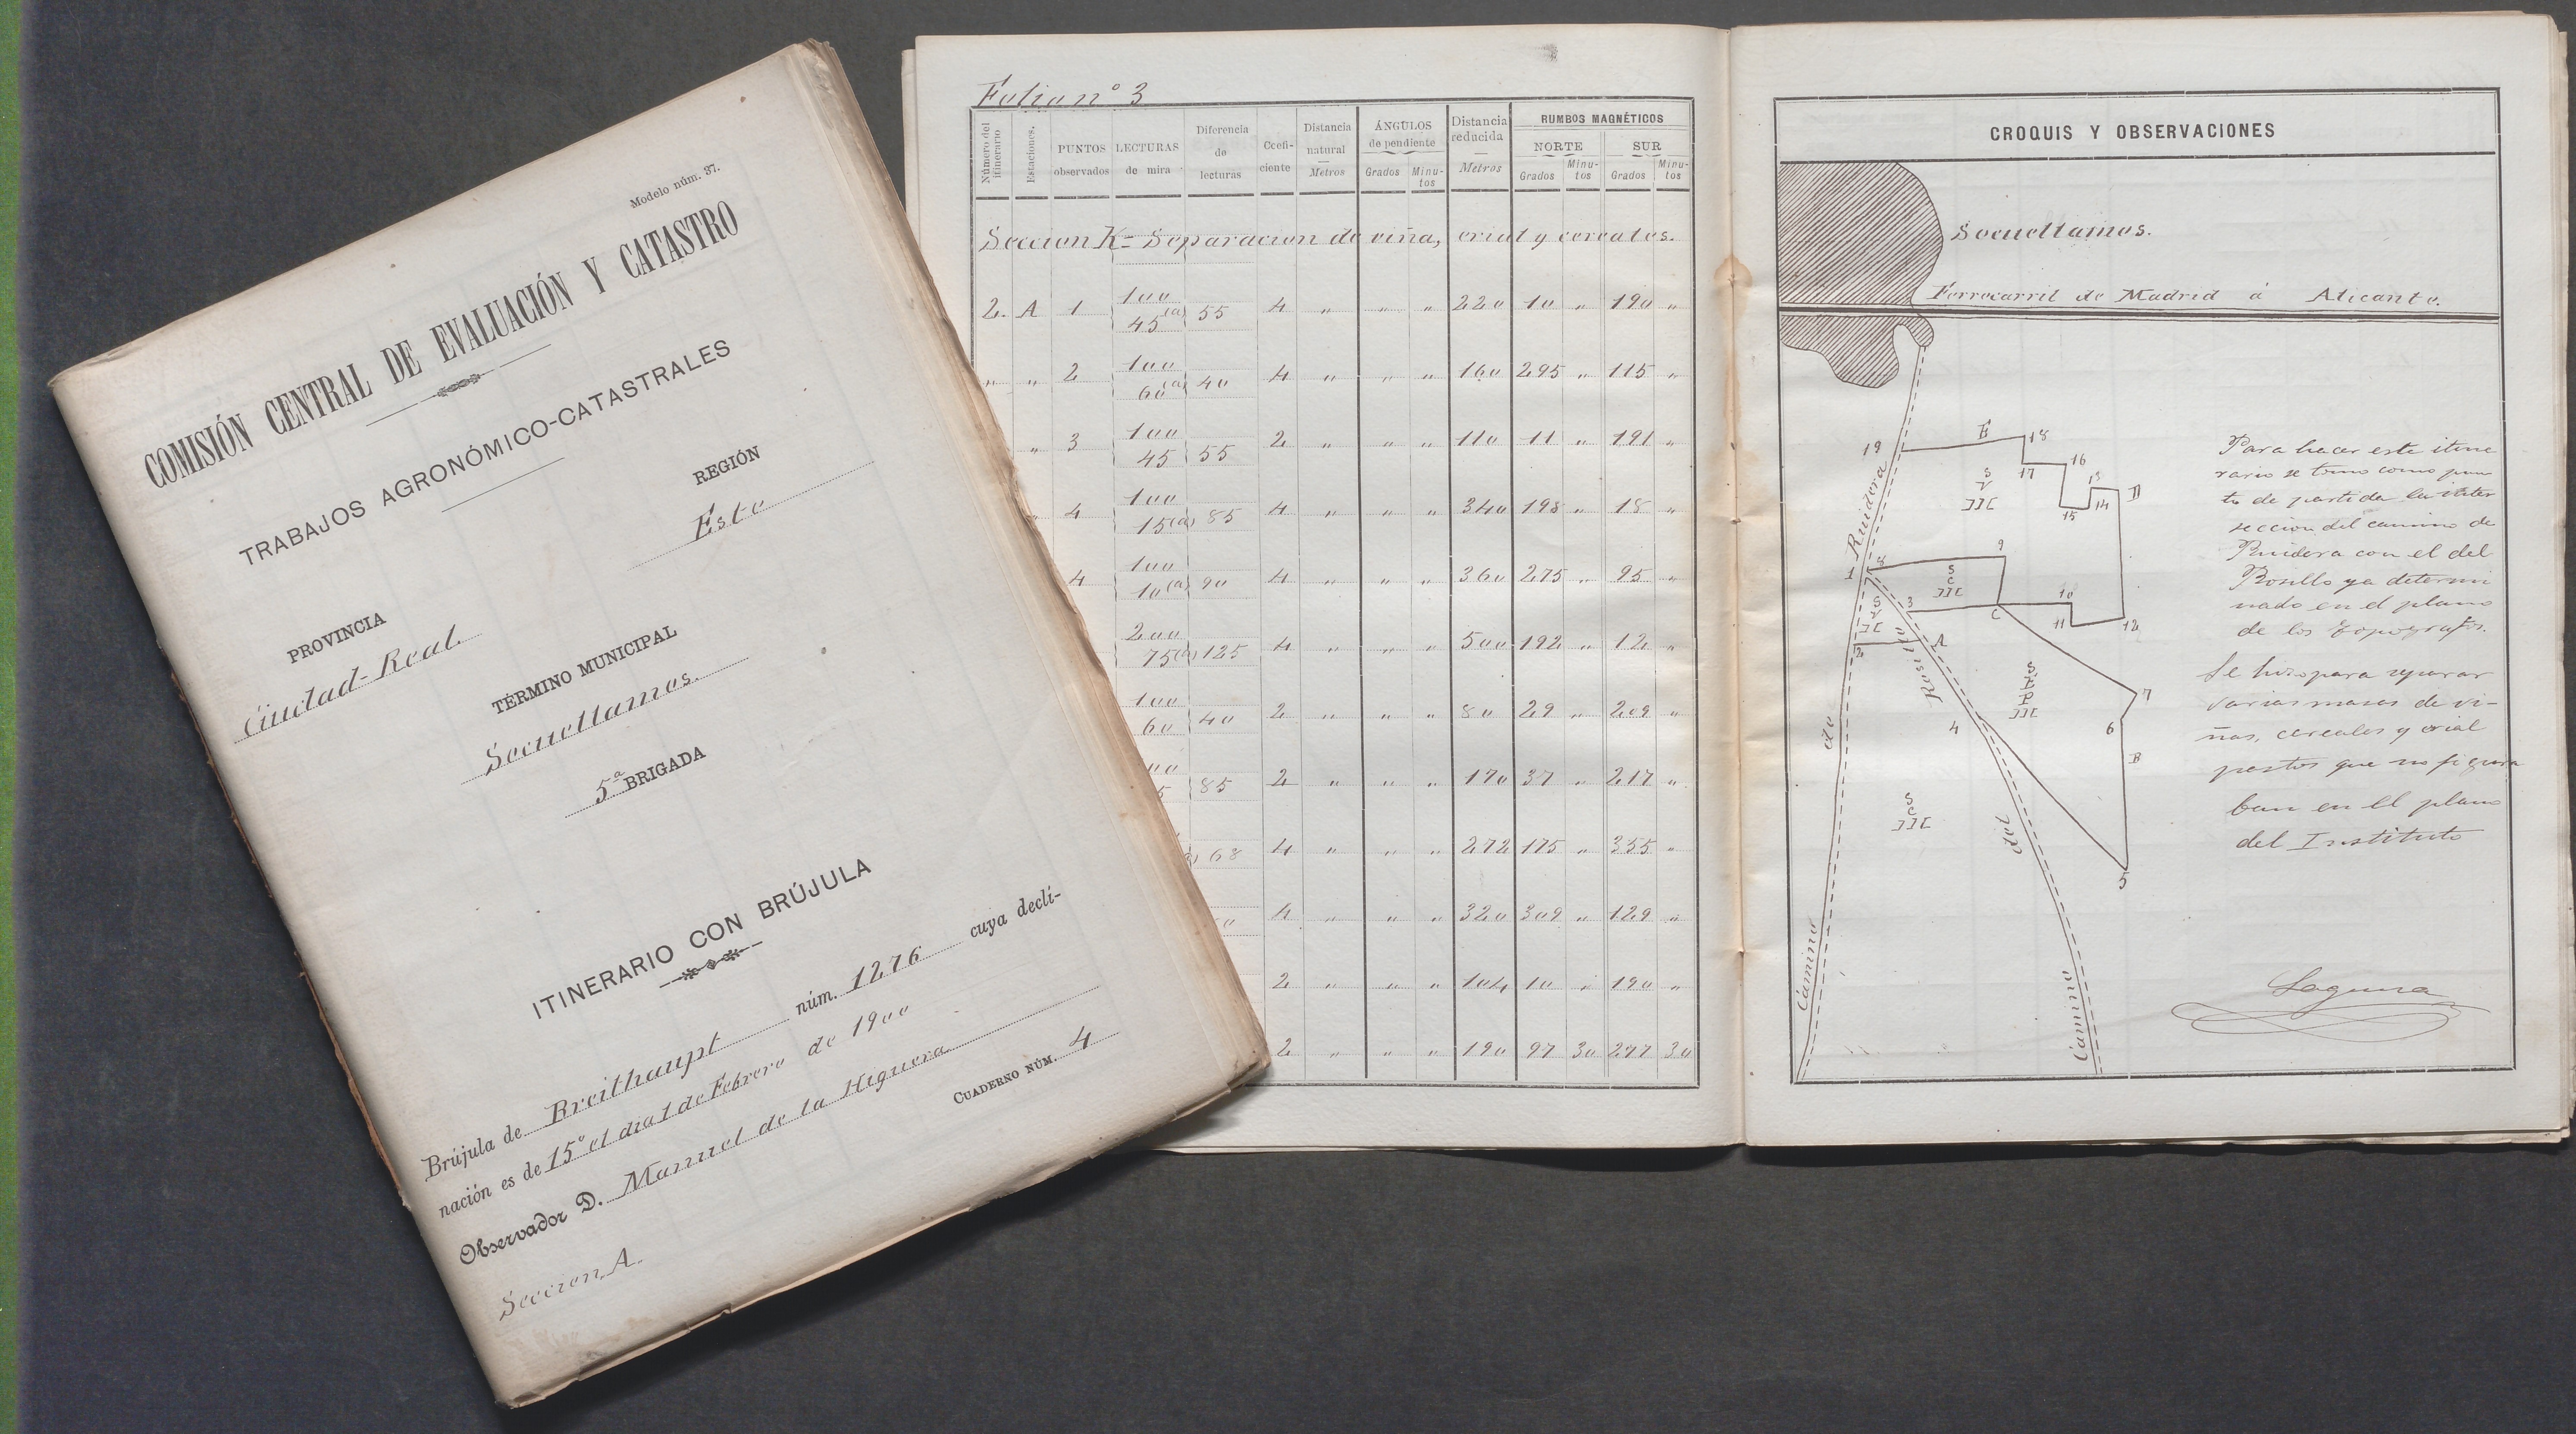 Modelo núm. 37.
COMISIÓN CENTRAL DE EVALUACIÓN Y CATASTRO
TRABAJOS AGRONÓMICO-CATASTRALES
REGIÓN
Este
PROVINCIA
Ciudad-Real.
TÉRMINO MUNICIPAL
Socuellamos.
5ª BRIGADA
ITINERARIO CON BRÚJULA
Brújula de Breithaupt núm. 1276 cuya decli-
nación es de 15° el dia 1 de Febrero de 1900
Observador D. Manuel de la Higuera
CUADERNO NÚM. 4
Seccion A.
Folio nº 3
Número del itinerario Estaciones. PUNTOS observados LECTURAS de mira Diferencia de lecturas Coefi-ciente Distancia natural Metros ÁNGULOS de pendiente Grados Minu-tos Distancia reducida Metros RUMBOS MAGNÉTICOS NORTE Grados Minu-tos SUR Grados Minu-tos
Seccion K = Separacion de viña, erial y cereales.
2. A 1 100 45 (a) 55 4 " " " 220 10 " 190 "
" " 2 100 60 (a) 40 4 " " " 160 295 " 115 "
" 3 100 45 55 2 " " " 110 11 " 191 "
" 4 100 15 (a) 85 4 " " " 340 198 " 18 "
4 100 10 (a) 90 4 " " " 360 275 " 95 "
200 75 (a) 125 4 " " " 500 192 " 12 "
100 60 40 2 " " " 80 29 " 209 "
85 2 " " " 170 37 " 217 "
68 4 " " " 272 175 " 355 "
4 " " " 320 309 " 129 "
2 " " " 104 10 " 190 "
2 " " " 190 97 30 277 30
CROQUIS Y OBSERVACIONES
Socuellamos.
Ferrocarril de Madrid á Alicante.
19 E 18
17 16
15 14 D
15
S
V
Ruidera
1 8 9
S
C
3 C 10
11 12
2 A
Rosillo
4
7
6
B
5
S
C
de
del
Camino
Camino
Para hacer este itine
rario se tomo como pun
to de partida la inter
seccion del camino de
Ruidera con el del
Rosillo ya determi
nado en el plano
de los topografos.
Se hizo para separar
varias masas de vi-
ñas, cereales y erial
pastos que no figura
ban en el plano
del Instituto
Laguna